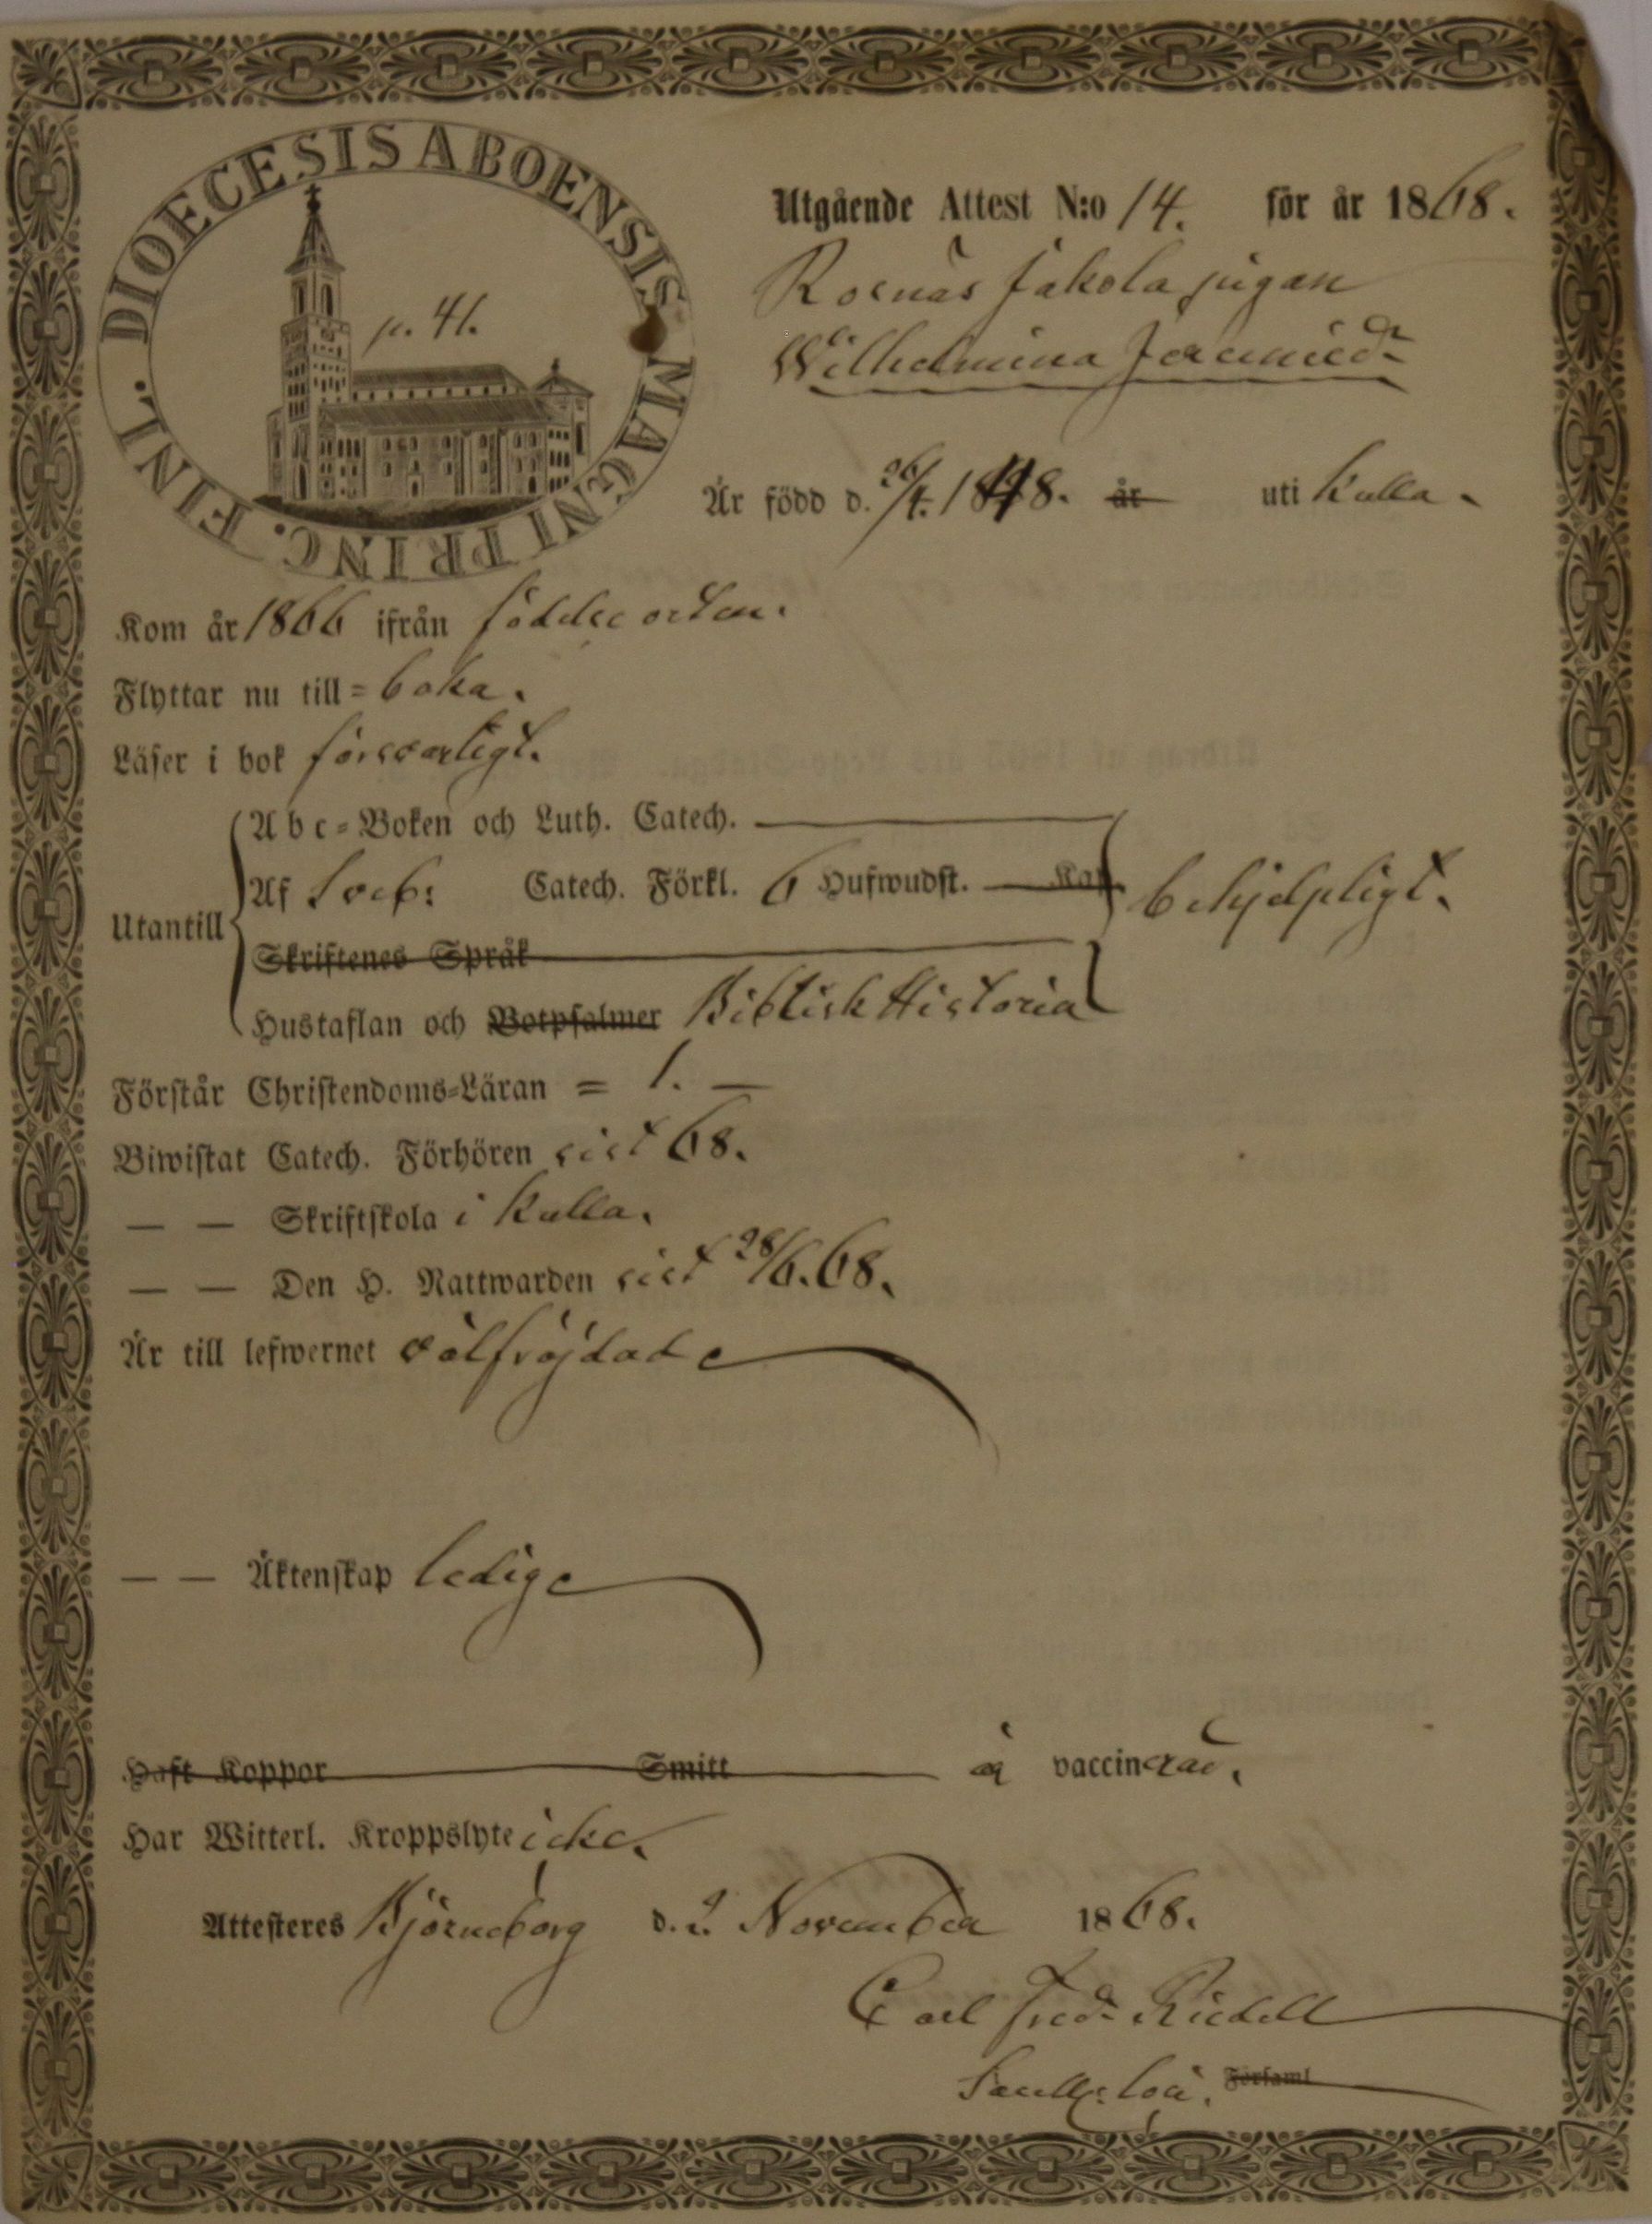 DIOECESIS ABOENSIS MAGNI PRINC. FINL.
p. 41.
Utgående Attest N:o 14. för år 1868.
Rosnäs Jakola pigan
Wilhelmina Jeremiedr
Är född d. 26/4. 1848. år uti Kulla.
Kom år 1866 ifrån födelseorten.
Flyttar nu till = baka.
Läser i bok försvarligt.
Utantill
Abc-Boken och Luth. Catech.
Af Sveb: Catech. Förkl. 6 Hufwudst. Kap.
behjelpligt.
Skriftenes Språk
Hustaflan och Botpsalmer Biblisk Historia
Förstår Christendoms-Läran = 1. —
Biwistat Catech. Förhören sist 68.
— — Skriftskola i Kulla.
— — Den H. Nattwarden sist 28/6. 68.
Är till lefwernet välfrejdad
— — Äktenskap ledig
Haft Koppor Smitt är vaccinerad.
Har Witterl. Kroppslyte icke.
Attesteres Björneborg d. 2. November 1868.
Carl Fredr Riedell
Församl